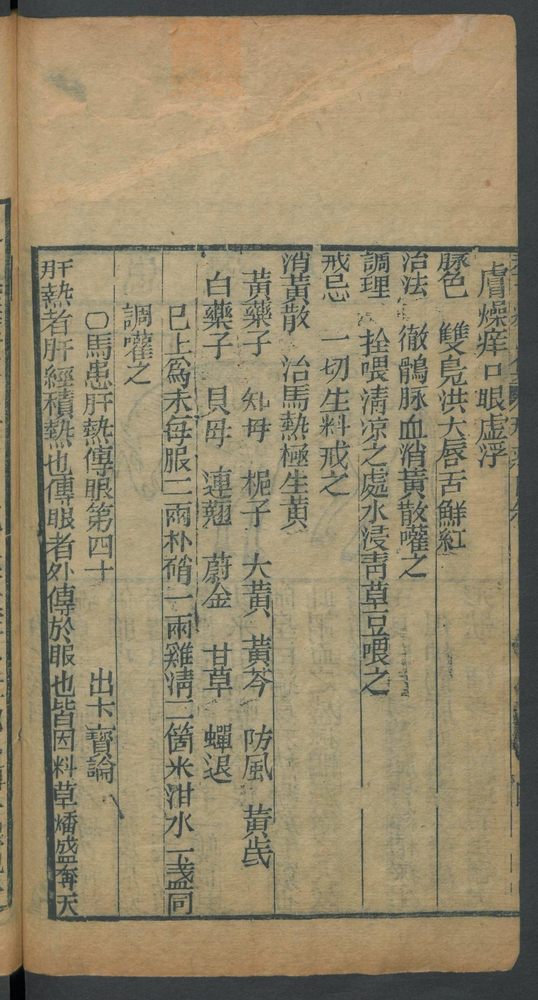 膚燥痒口眼虛浮
脉色 雙鳬洪大唇舌鮮紅
治法 徹鶻脉血消黃散灌之
調理 拴喂清凉之處水浸靑草豆喂之
戒忌 一切生料戒之
消黃散 治馬熱極生黃
黃藥子 知母 梔子 大黃 黃芩 防風 黃茋
白藥子 貝母 連翹 蔚金 甘草 蟬退
已上爲末每服二兩朴硝一兩雞淸二箇米泔水一盞同
調灌之
〇馬患肝熱傳眼第四十 出卞寶論
肝熱者肝經積熱也傳眼者外傳於眼也皆因料草燔盛奔天